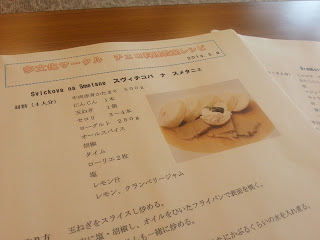 多文化サークル チェコ料理講習レシピ
Svickova na Smetane スヴィチコバ ナ スメタニエ
材料（4人分）
牛肉赤身かたまり 500g
にんじん 1本
玉ねぎ 1個
セロリ 3～4本
ヨーグルト 200g
オールスパイス
胡椒
タイム
ローリエ2枚
塩
レモン汁
レモン、クランベリージャム
玉ねぎをスライスし炒める。
に塩・胡椒し、オイルをひいたフライパンで表面を焼く。
も一緒に炒める。
たにかぶるくらいの水を入れ煮る。